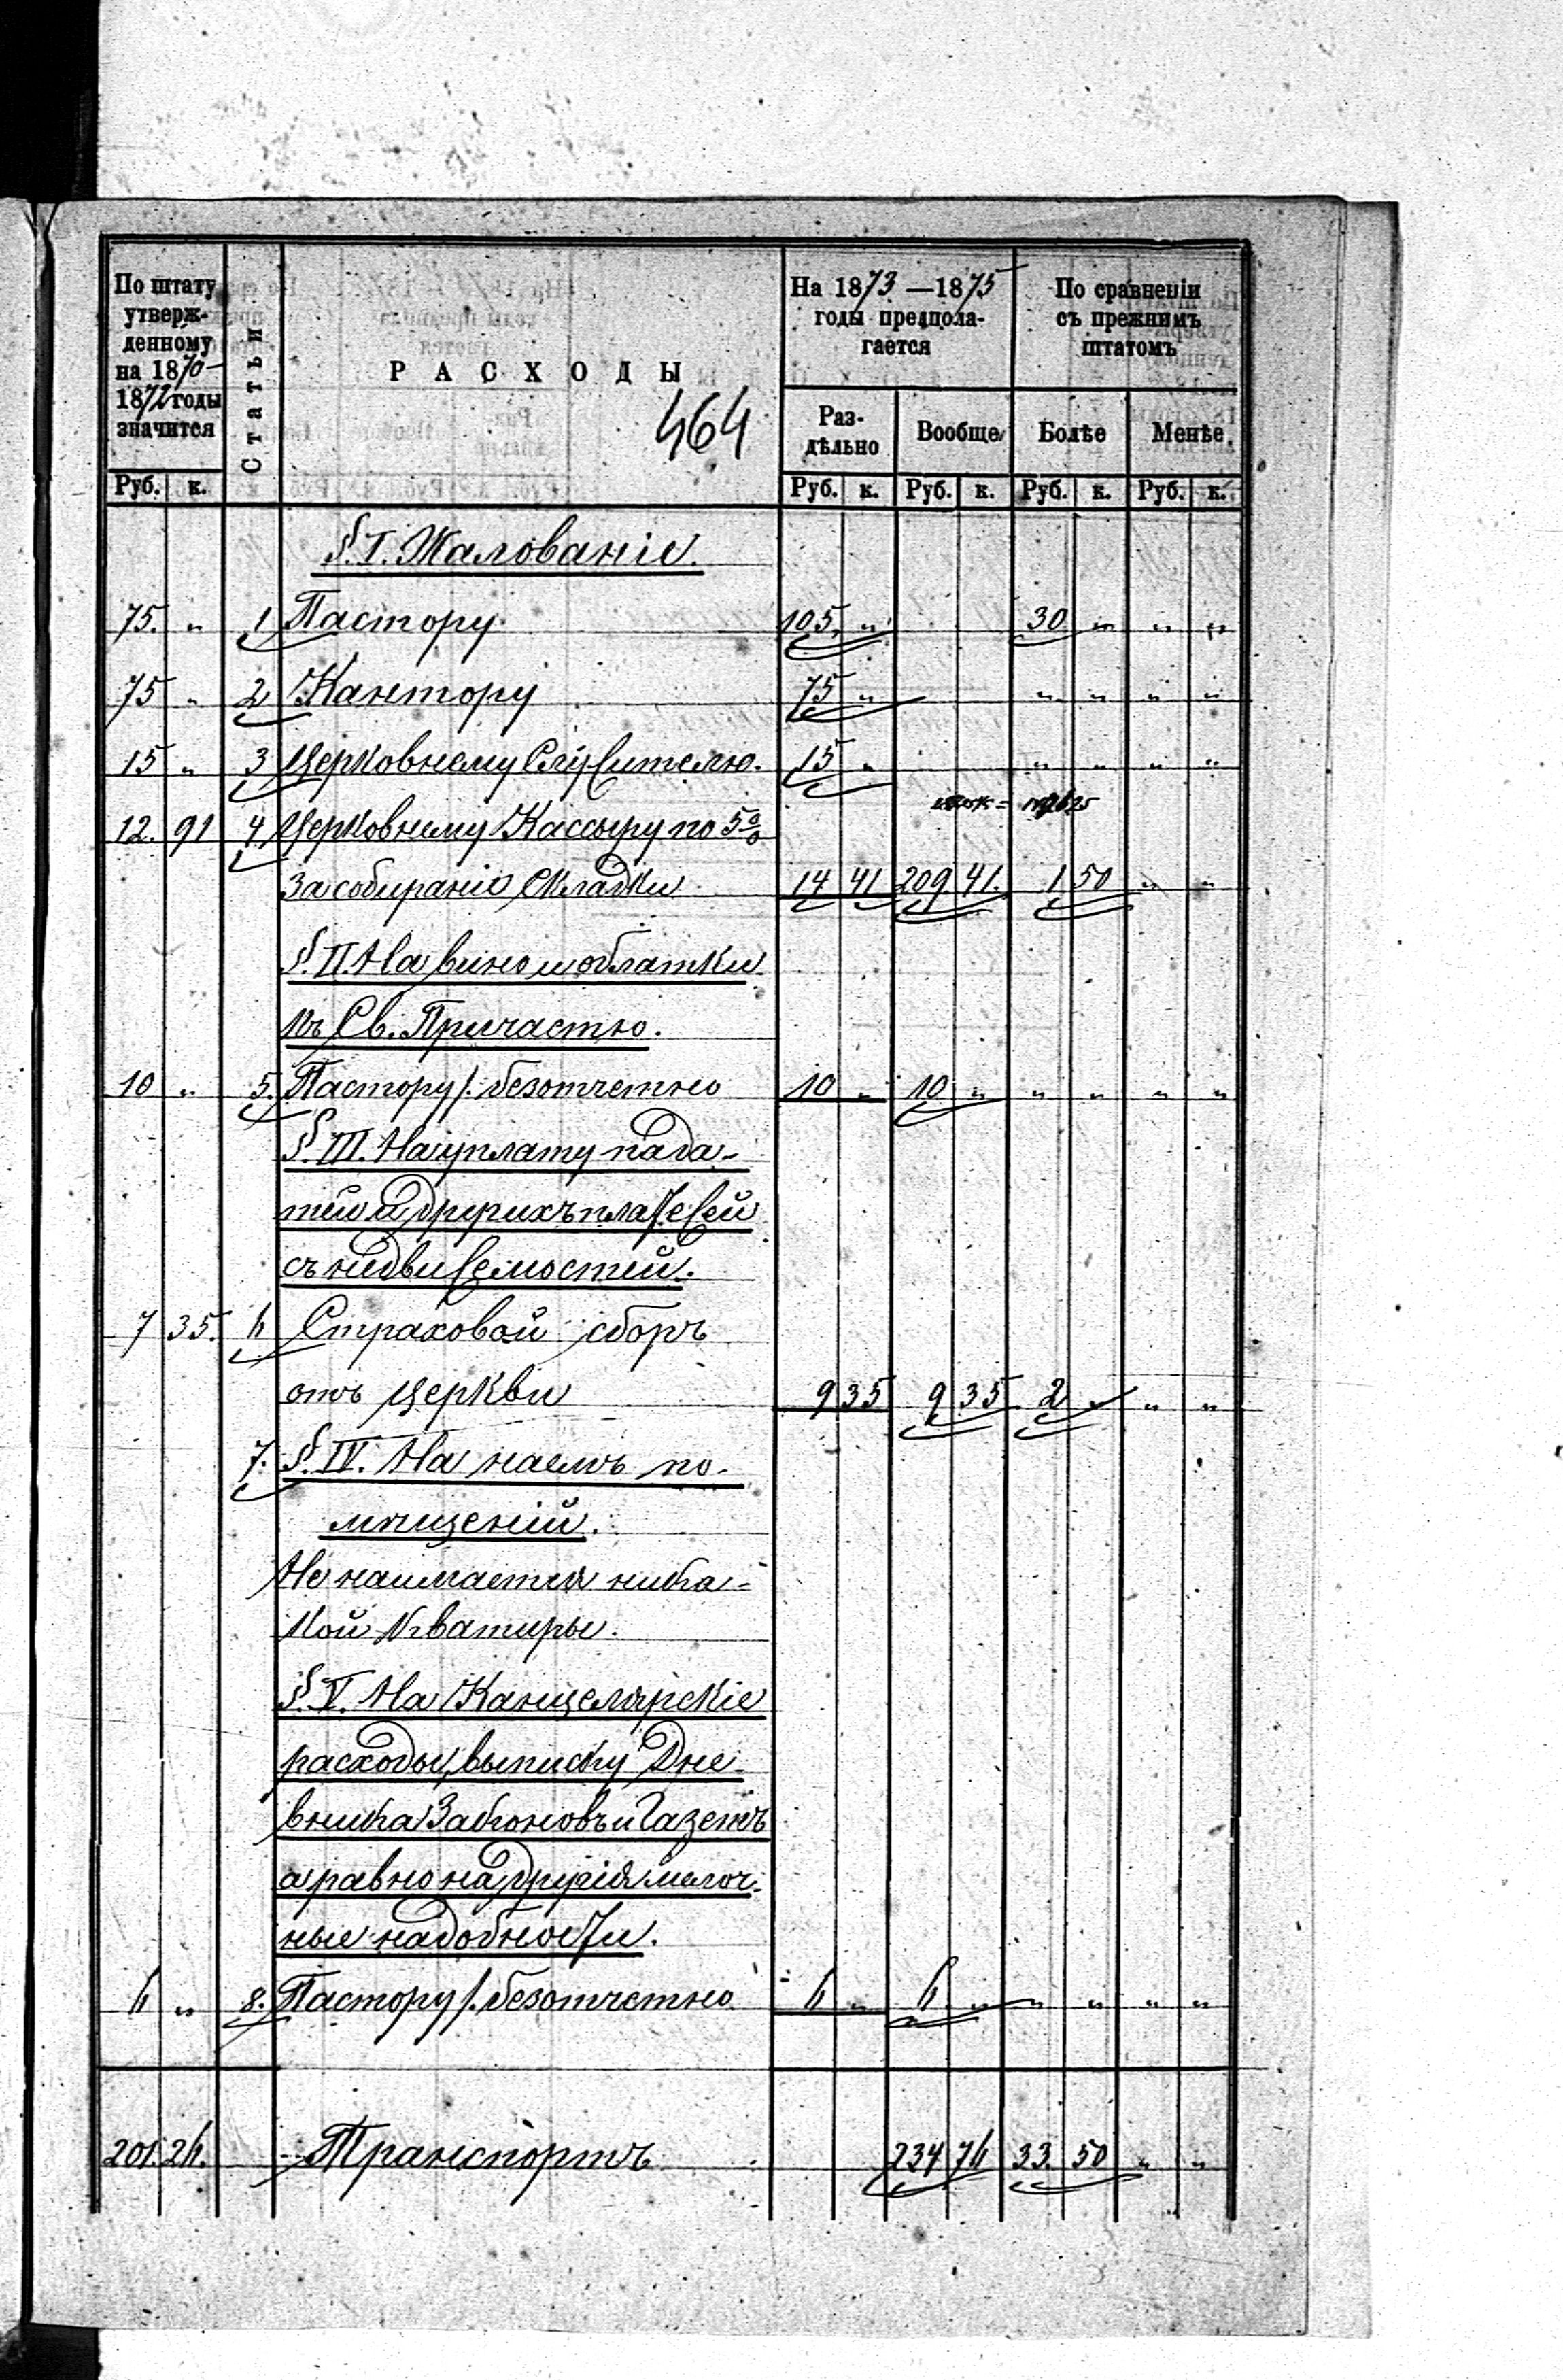 По штату
утверж-
денному
на 1870-
1872 годы
значится
Статьи
РАСХОДЫ
464
На 1873 — 1875
годы предпола-
гается
По сравненіи
съ прежнимъ
штатомъ
Раз-
дѣльно
Вообще
Болѣе
Менѣе.
Руб. к. Руб. к. Руб. к. Руб. к. Руб. к.
§. I. Жалованіе.
75. " 1 Пастору 105. " 30 " " "
75 " 2 Кантору 75 " " " " "
15 " 3 Церковнему Служителю. 15 " " " " "
12. 91 4 Церковнему Кассыру по 5%
за собираніе складки 14 41 209 41. 1 50 " "
§. II. На вино и облатки
къ Св. Причастю.
10 " 5. Пастору /. безотчетно 10 " 10 " " " " "
§. III. На уплату пода-
тей и другихъ платежей
съ недвижемостей.
7 35. 6 Страховой сборъ
отъ церкви 9 35 9 35 2 " " "
7. §. IV. На наемъ по-
мѣщеній.
Не наимается ника-
кой кватиры.
§. V. На Канцелярскіе
расходы, выписку Дне-
вника Законовъ и Газетъ
а равно на другія мелоч-
ные надобности.
6 " 8. Пастору /. безотчетно 6 " 6 " " " " "
201. 26. Транспортъ 234 76 33. 50 " "